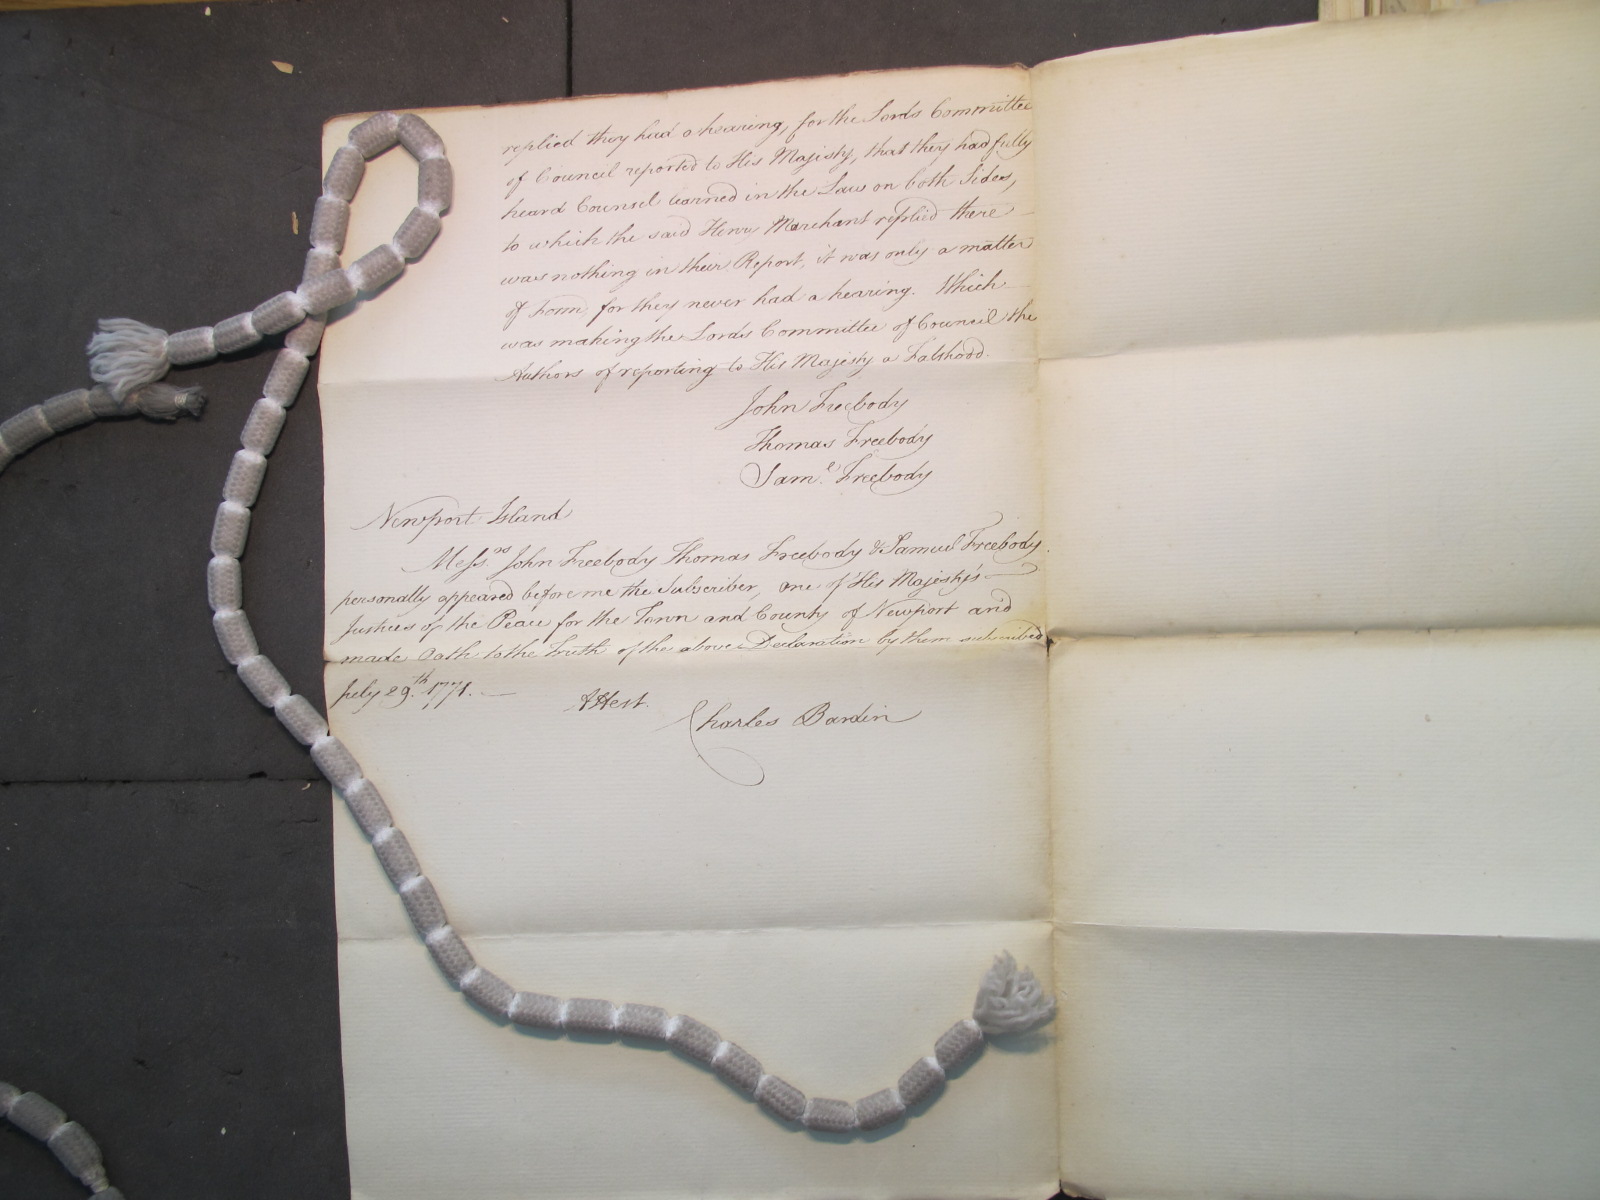 replied they had a hearing, for the Lords Committee
of Council reported to His Majisty, that they had fully
heard Counsel learned in the Law on both Sides,
to which the said Henry Marchant replied there
was nothing in their Report, it was only a matter
of Form, for they never had a hearing. Which
was making the Lords Committee of Council the
Authors of reporting to His Majesty a Falshood.
John Freebody
Thomas Freebody
Saml. Freebody
Newport Island
Messrs. John Freebody Thomas Freebody & Samuel Freebody.
personally appeared before me the Subscriber, one of His Majesty's
Justices of the Peace for the Town and County of Newport and
made Oath to the Truth of the above Declaration by them subscribed
July 29.th 1771.
Attest.
Charles Bardin